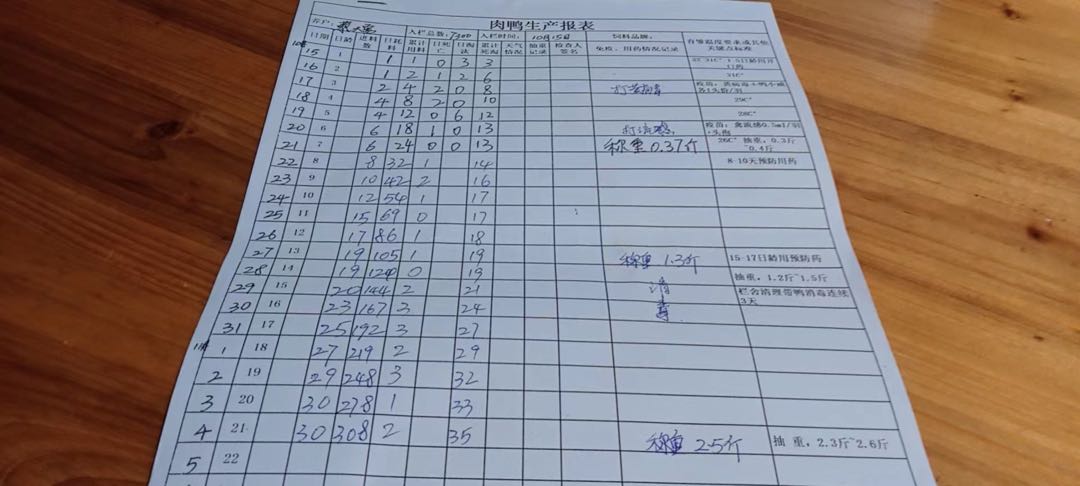 肉鸭生产报表
养户: 入栏总数: 7300 入栏时间: 10月15日 饲料品牌:
日期 日龄 进料数 日耗料 累计用料 日死亡 日淘汰 累计死淘 天气情况 抽重记录 检查人签名 免疫、用药情况记录 育雏温度要求或其他关键点标准
10月 15 1 1 1 0 3 3 1-5日龄用开口药
16 2 1 2 1 2 6 31C°
17 3 2 4 2 0 8 疫苗:
18 4 4 8 2 0 10 29C°
19 5 4 12 0 6 12 28C°
20 6 6 18 1 0 13 疫苗:禽流感0.5ml/羽
21 7 6 24 0 0 13 称重 0.37斤 26C° 抽重,0.3斤~0.4斤
22 8 8 32 1 14 8-10天预防用药
23 9 10 42 2 16
24 10 12 54 1 17
25 11 15 69 0 17
26 12 17 86 1 18
27 13 19 105 1 19 称重 1.3斤 15-17日龄用预防药
28 14 19 124 0 19 抽重,1.2斤~1.5斤
29 15 20 144 2 21 消 栏舍清理带鸭消毒连续3天
30 16 23 167 3 24 毒
31 17 25 192 3 27
11月 1 18 27 219 2 29
2 19 29 248 3 32
3 20 30 278 1 33
4 21 30 308 2 35 称重 2.5斤 抽重,2.3斤~2.6斤
5 22